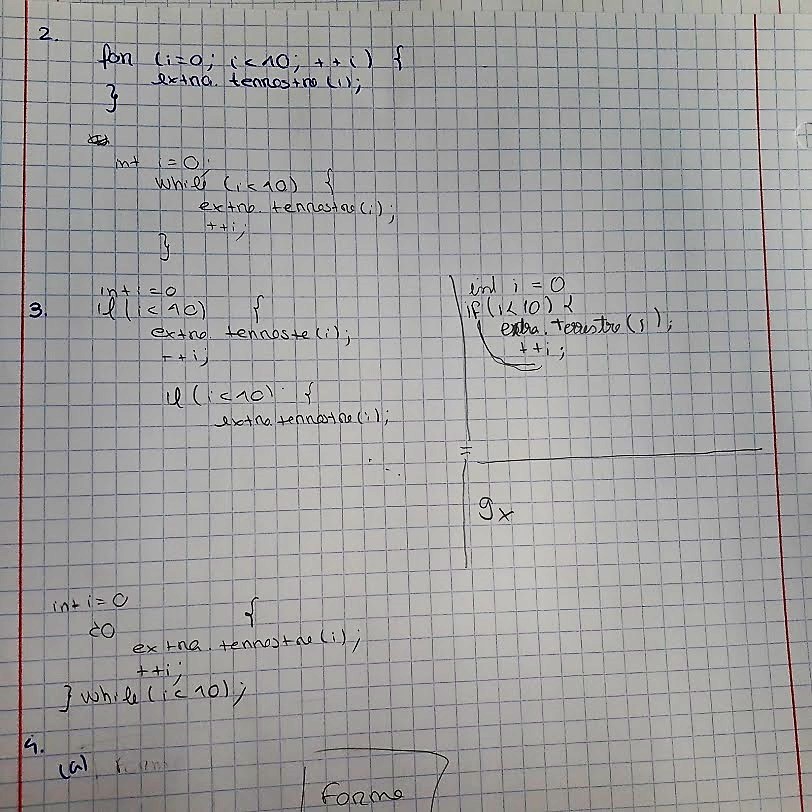 2.
for (i=0; i<10; ++i) {
extra.terrestre(i);
}
int i=0;
while (i<10) {
extra.terrestre(i);
++i;
}
3.
int i=0
if(i<10) {
extra.terreste(i);
++i;
if(i<10) {
extra.terrestre(i);
int i = 0
if(i<10) {
extra.terrestre(i);
++i;
9x
int i=0
do {
extra.terrestre(i);
++i;
} while(i<10);
4.
(a)
forme